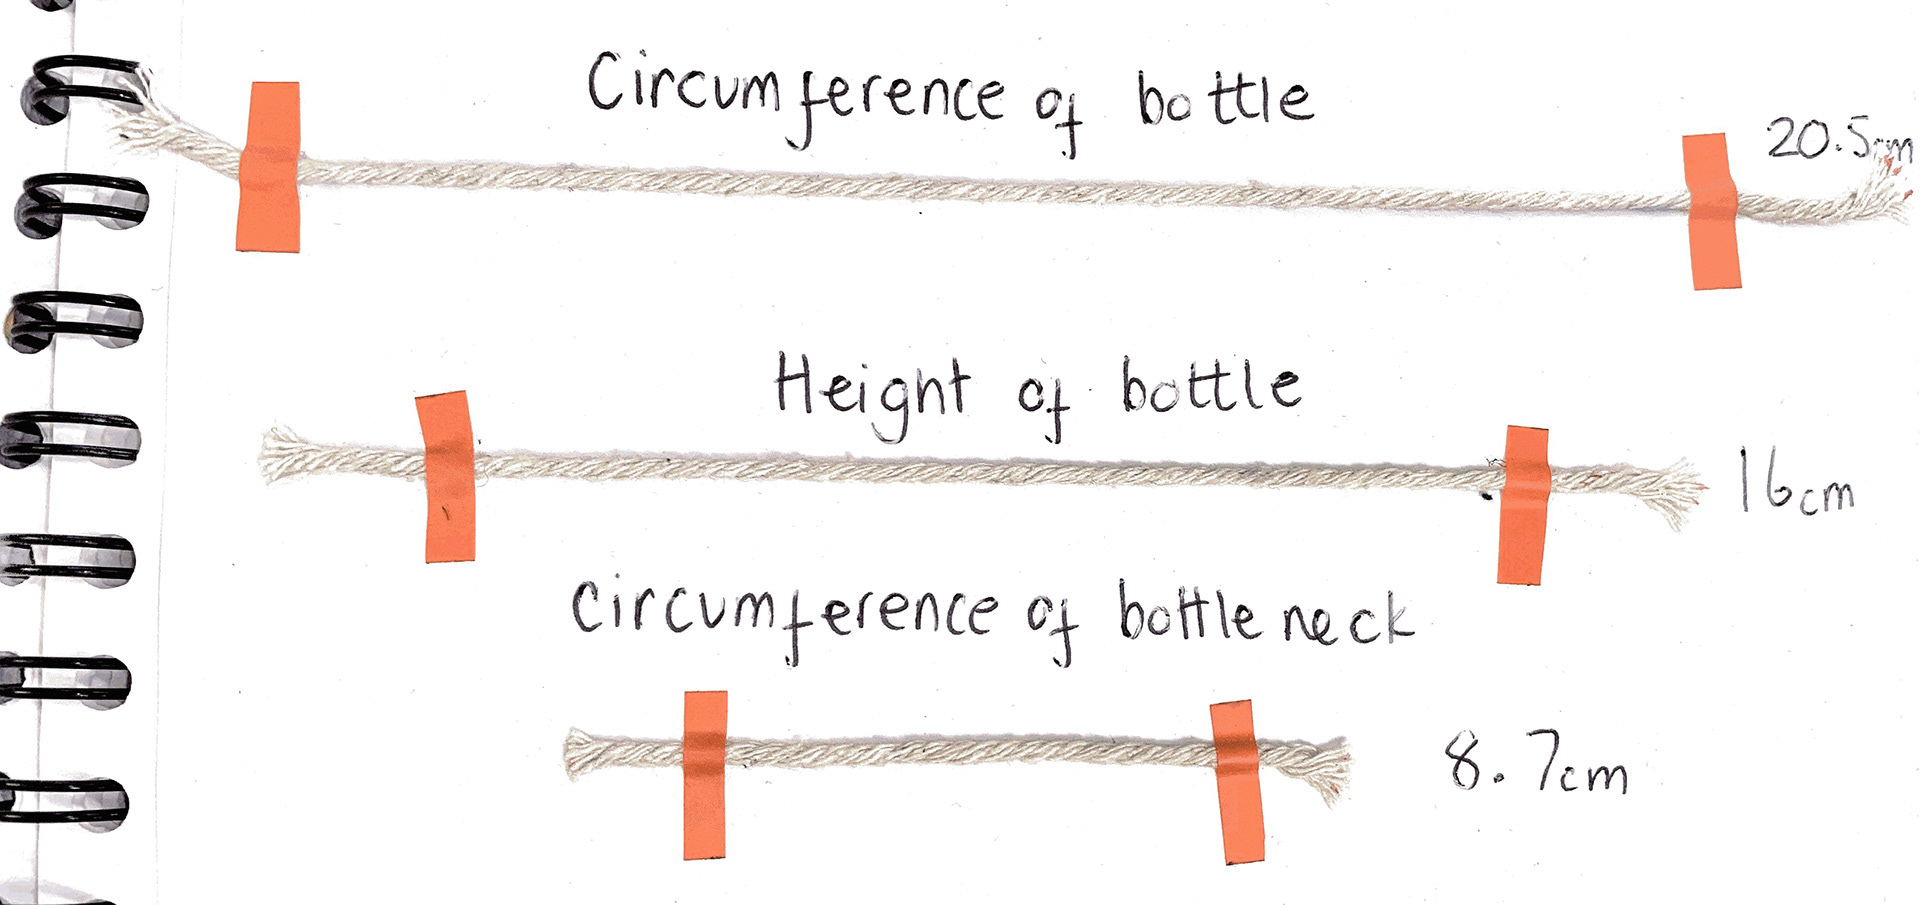 Circumference of bottle
20.5cm
Height of bottle
16cm
circumference of bottle neck
8.7cm